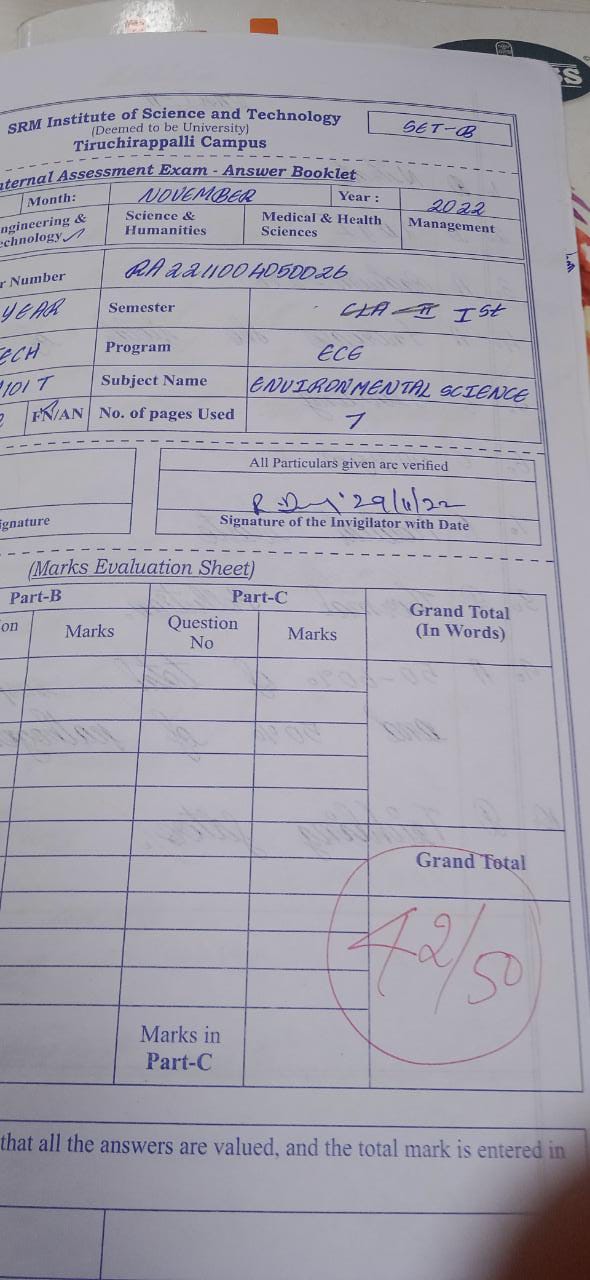 SRM Institute of Science and Technology
(Deemed to be University)
Tiruchirappalli Campus
SET-B
nternal Assessment Exam - Answer Booklet
Month: NOVEMBER Year : 2022
ngineering & echnology ✓ Science & Humanities Medical & Health Sciences Management
r Number RA2211004050026
YEAR Semester CLA-II Ist
ECH Program ECE
101 T Subject Name ENVIRONMENTAL SCIENCE
FN/AN No. of pages Used 7
All Particulars given are verified
29/11/22
ignature Signature of the Invigilator with Date
(Marks Evaluation Sheet)
Part-B Part-C Grand Total (In Words)
on Marks Question No Marks
Grand Total
42/50
Marks in Part-C
that all the answers are valued, and the total mark is entered in